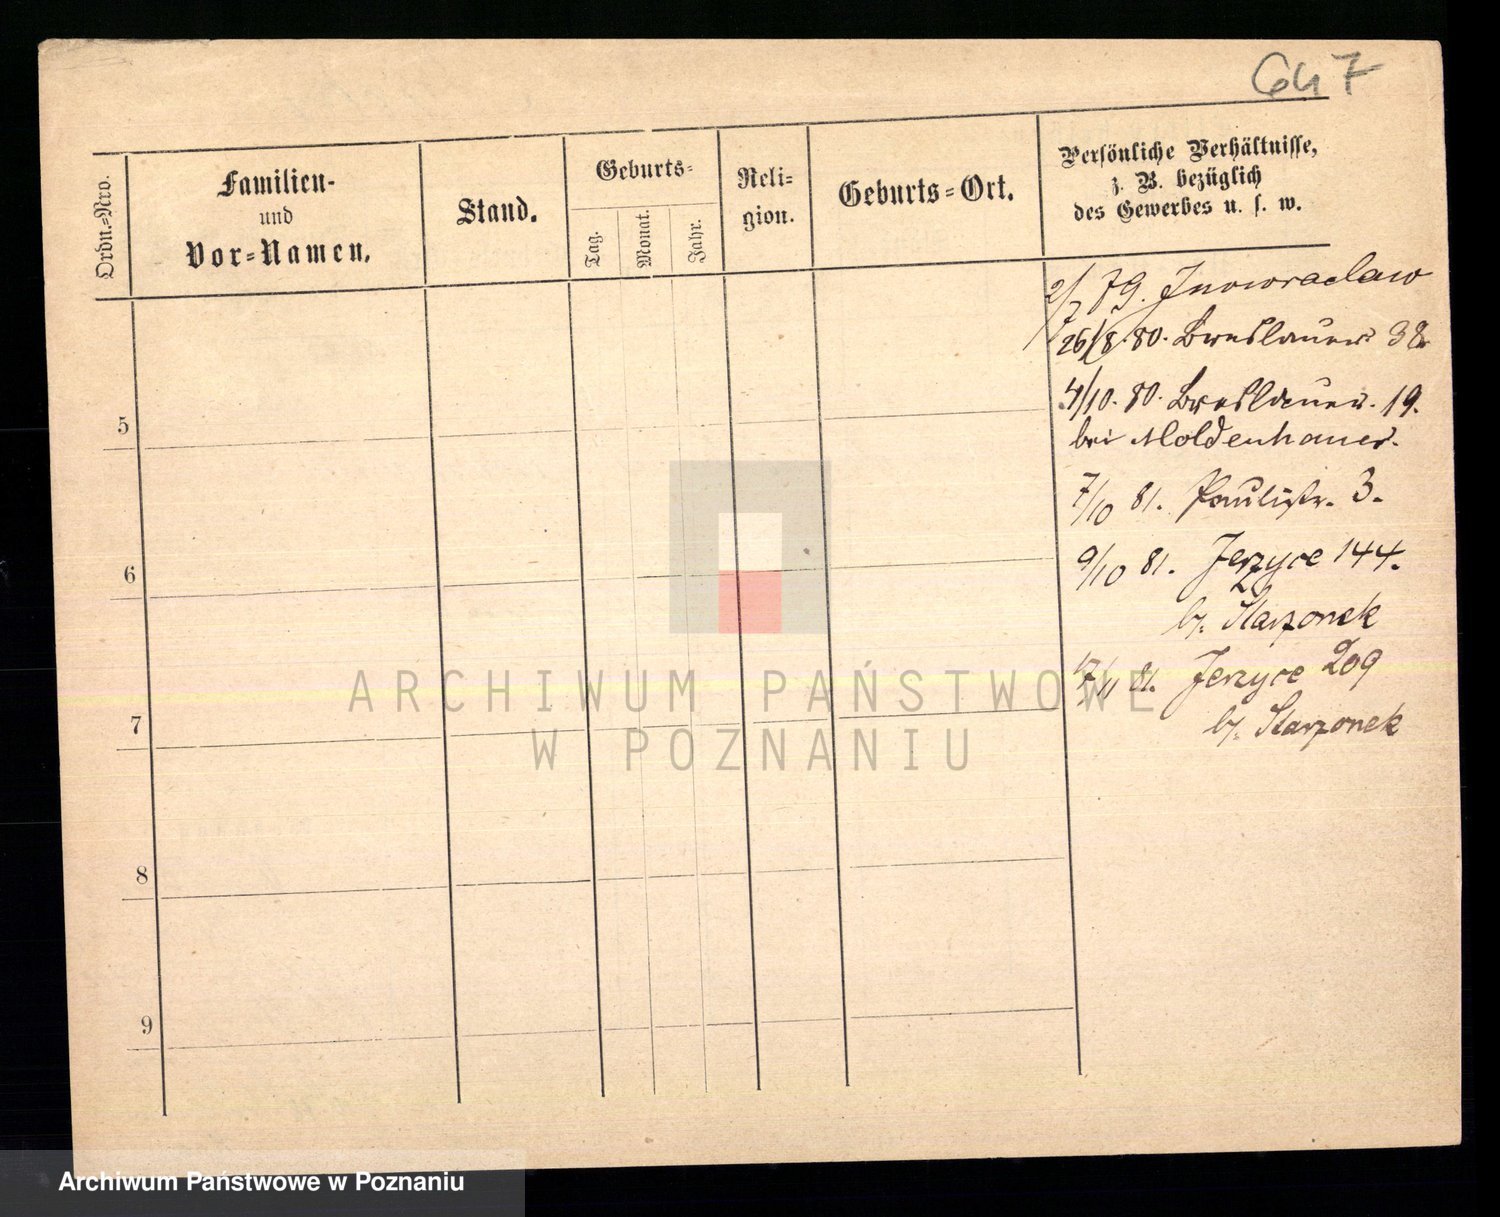 647
Ordn.-Nro.
Familien-
und
Vor-Namen.
Stand.
Geburts-
Tag.
Monat.
Jahr.
Reli-
gion.
Geburts-Ort.
Persönliche Verhältnisse,
z. B. bezüglich
des Gewerbes u. s. w.
2/7 79. Inowraclaw
26/8. 80. Breslauer 38
4/10. 80. Breslauer. 19.
bei Moldenhauer.
7/10 81. Paulistr. 3.
9/10 81. Jerzyce 144.
b/. Starzonek
17/11 81. Jerzyce 209
b/. Starzonek
5
6
7
8
9
ARCHIWUM PAŃSTWOWE
W POZNANIU
Archiwum Państwowe w Poznaniu